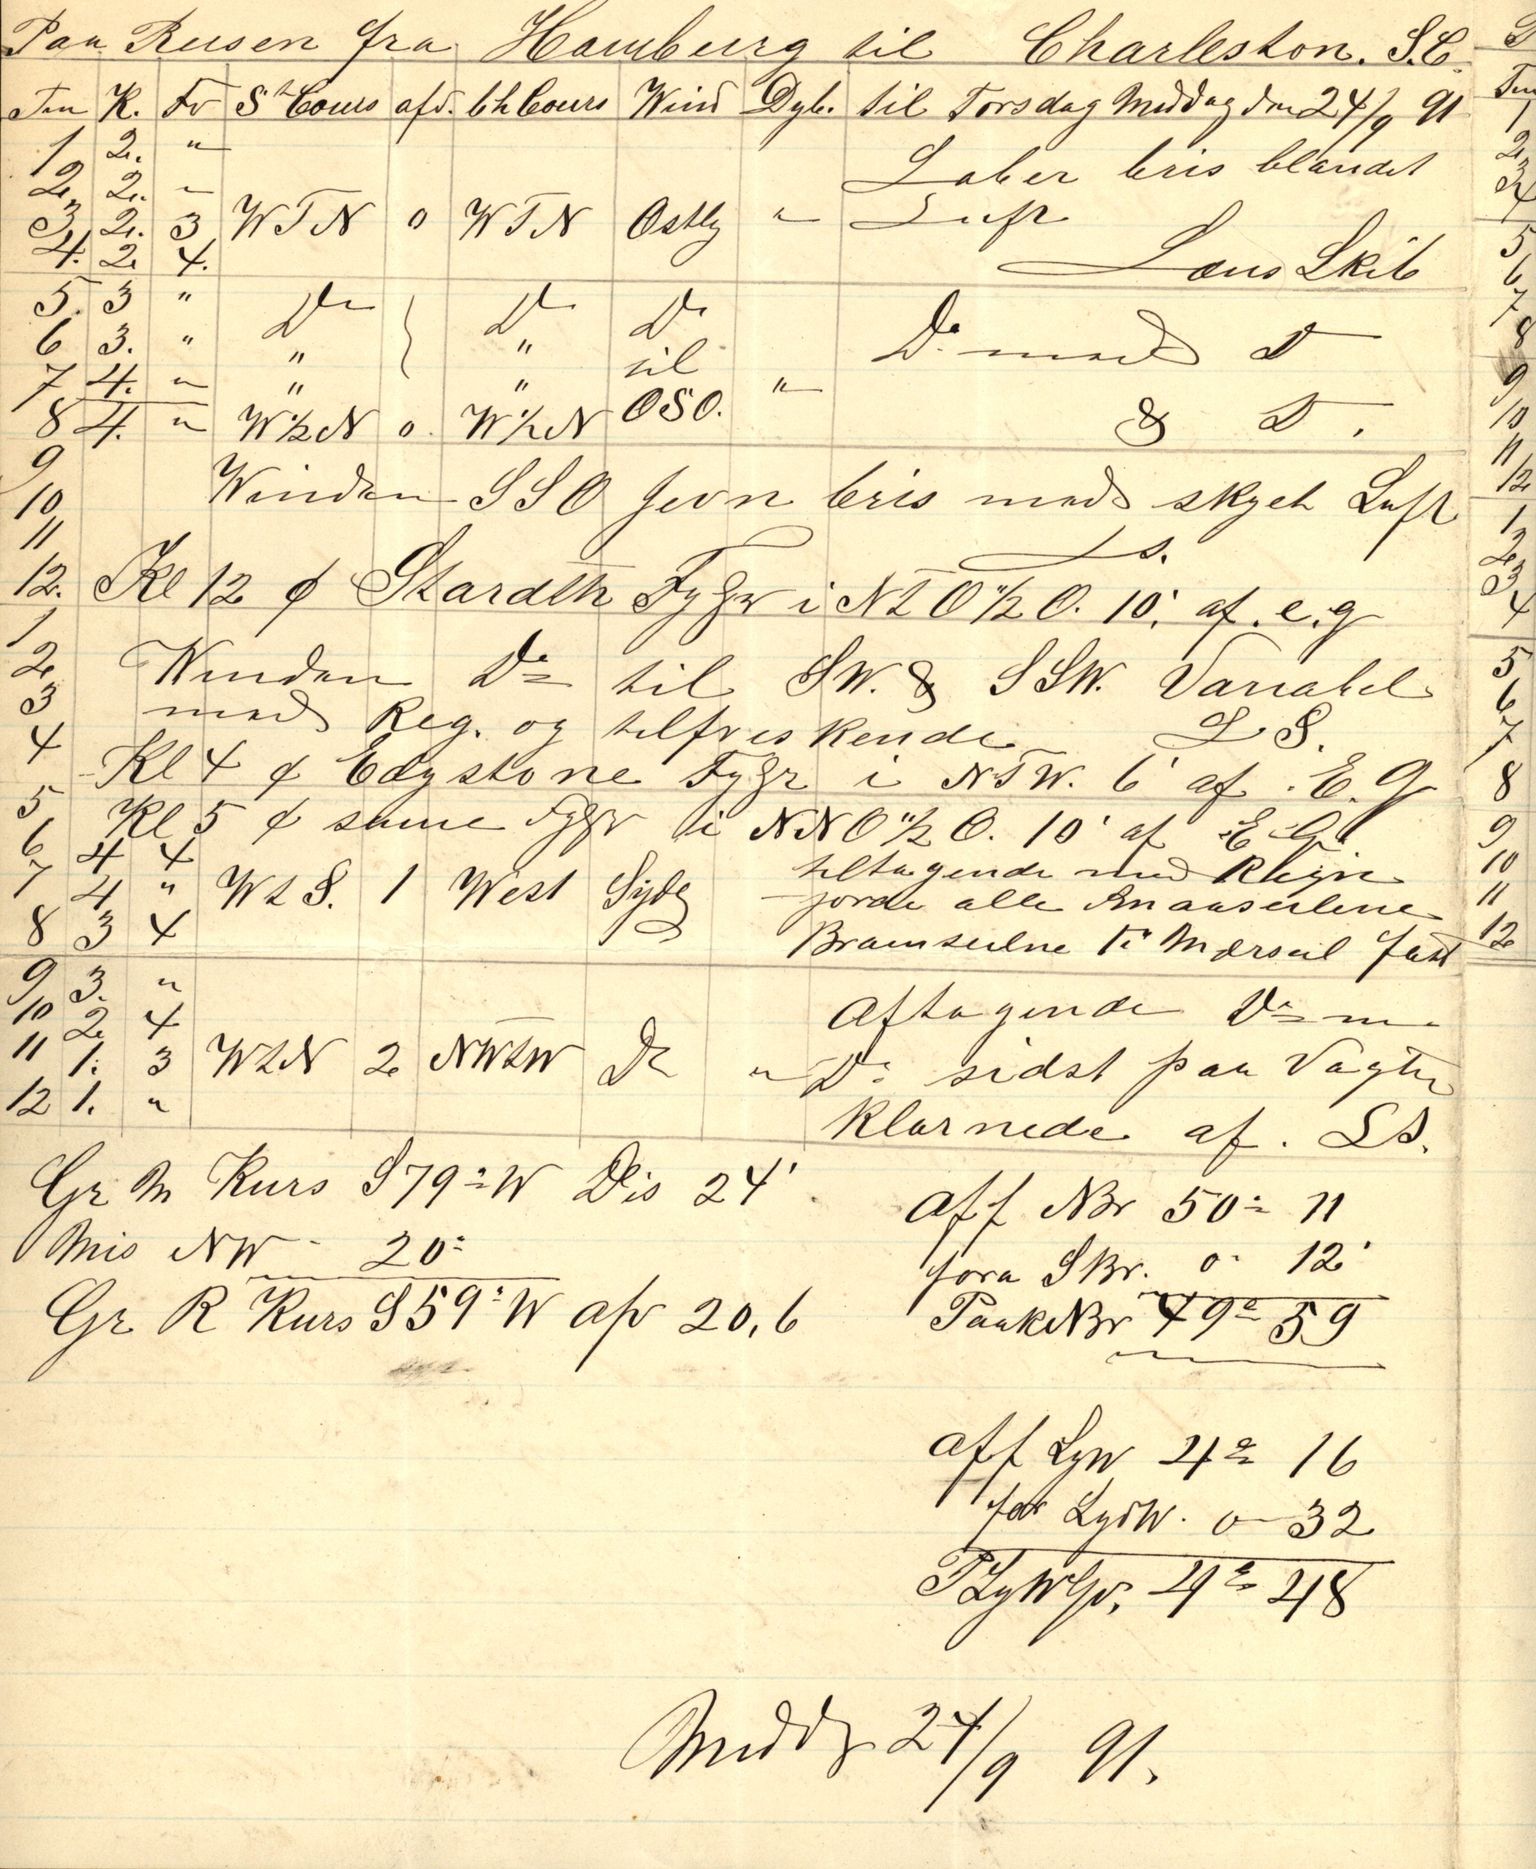 Paa Reisen fra Hamburg til Charleston. S.C.
Tim K. Fv St Cours afd. bh Cours Wind Dyb. til Torsdag Middag den 24/9 91
1 2. "
2. 2. " Laber bris blandet
3 2. 3 WTN 0 WTN Ostlig " Luft
4. 2 4. Læns Skib
5. 3 " Do Do Do Do med Do
6 3. " " " til
7 4. " " " OSO. "
8 4. " W½N 0. W½N & Do.
9
10 Vinden SSO jevn bris med skyet Luft
11 L s.
12. Kl 12 ¢ Fyger i NTO½O. 10' af. e.g
1
2 Vinden Do til SW. & SSW. Variabel
3 med Reg. og tilfriskende L S.
4 Kl 4 ¢ Edystone Fygr i NTW. 6' af. E.G
5 Kl 5 ¢ samme Fygr i NNO½O. 10' af E.G.
6 4 4 tiltagende med Regn
7 4 " WtS. 1 West Sydlg gjorde alle
8 3 4 Bramseilne Mærseil fast
9 3. "
10 2 4 Aftagende Do m
11 1. 3 WtN 2 NWtW Do " Do sidst paa Vagten
12 1. " klarnede af. L S.
Gr M Kurs S79°W Dis 24'
Mis NW 20°
Gr R Kurs S59°W afv 20,6
Aff NBr 50° 11
fora SBr. 0° 12'
Paak NBr 49° 59
Aff LgW 4° 16
for LgdW. 0 32
PLgWGr. 4° 48
Middg 24/9 91.
5
6
7
8
9
10
11
12
1
2
3
4
5
6
7
8
9
10
11
12